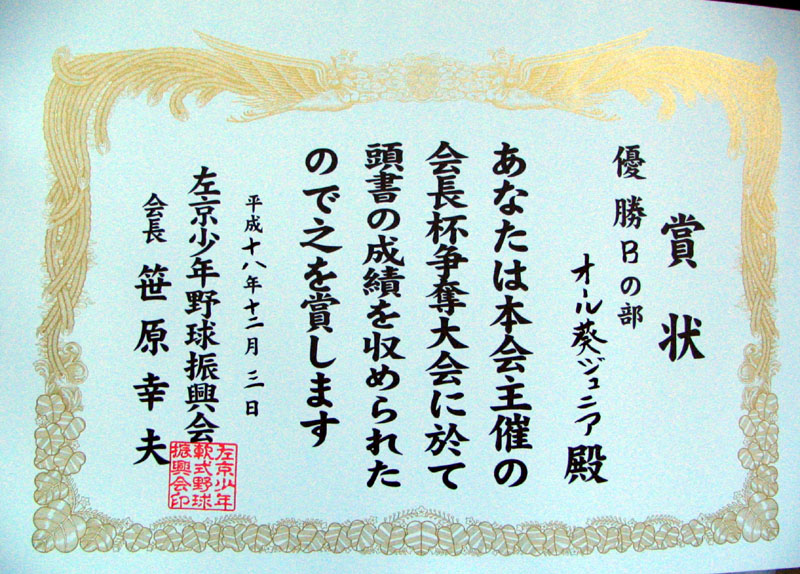 賞状
優勝Bの部
オール葵ジュニア殿
あなたは本会主催の
会長杯争奪大会に於て
頭書の成績を収められた
ので之を賞します
平成十八年十二月三日
左京少年野球振興会
会長 笹原幸夫
左京少年
軟式野球
振興会印